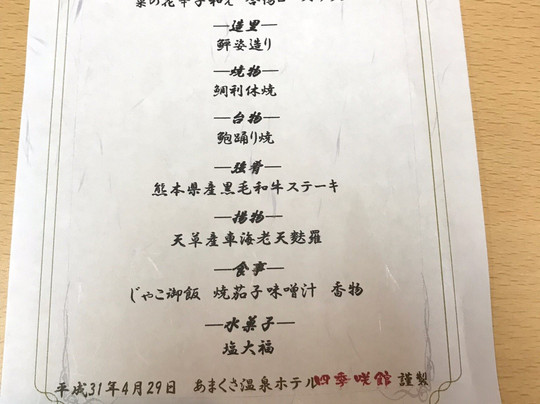 菜の花辛子和え
―造里―
鮃姿造り
―焼物―
鯛利休焼
―台物―
鮑踊り焼
―強肴―
熊本県産黒毛和牛ステーキ
―揚物―
天草産車海老天麩羅
―食事―
じゃこ御飯 焼茄子味噌汁 香物
―水菓子―
塩大福
平成31年4月29日 あまくさ温泉ホテル四季咲館 謹製